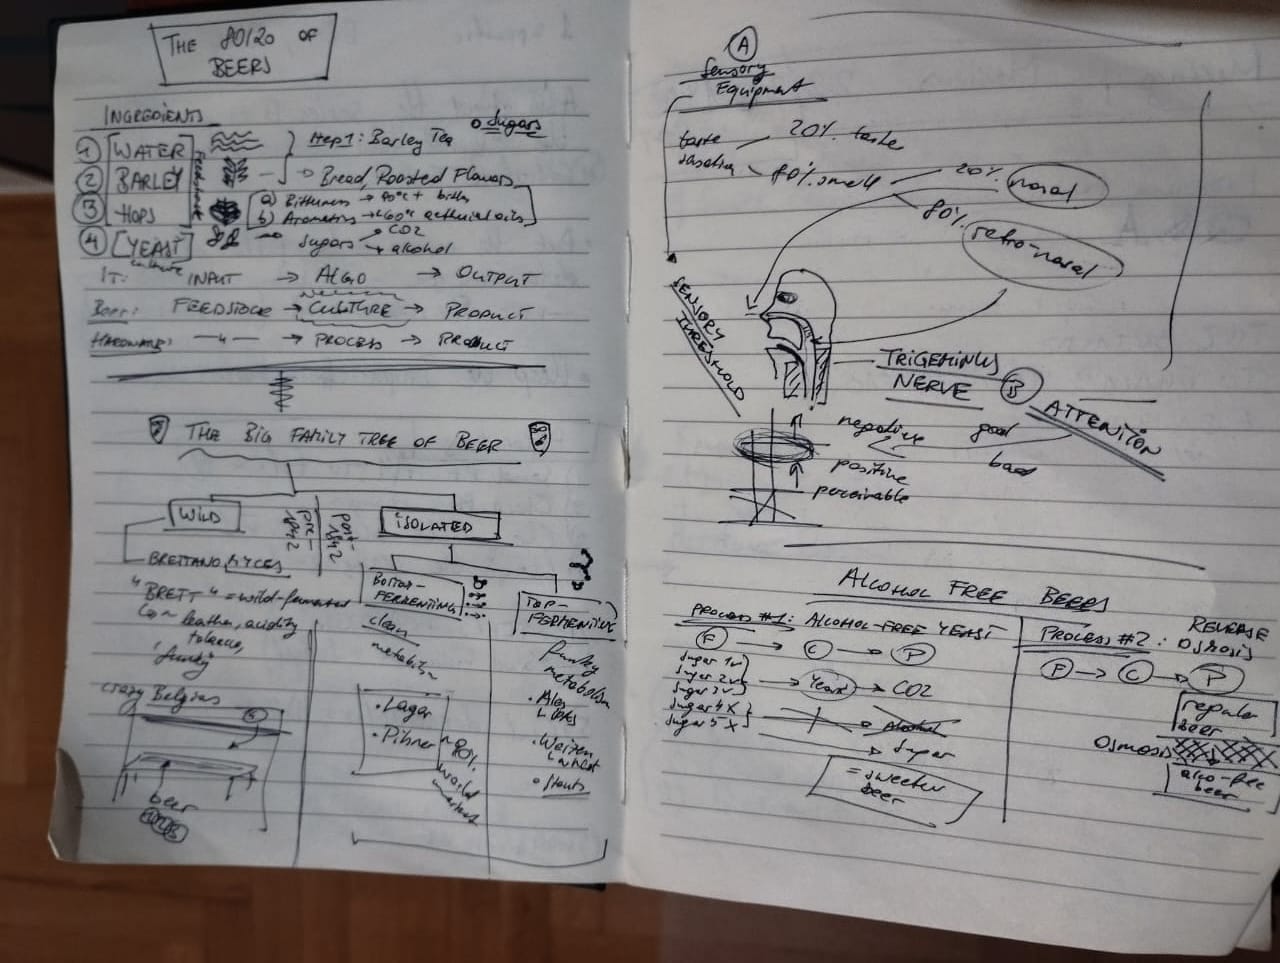 THE 80/20 OF
BEERS
INGREDIENTS
1 WATER
Step 1: Barley Tea
Sugars
2 BARLEY
Bread, Roasted Flavors
3 HOPS
Feedstock
a) Bitterness → 90°C +
b) Aromatics → <60°C oils
4 [YEAST]
culture
sugars
CO2
alcohol
IT: INPUT → ALGO → OUTPUT
Beer: FEEDSTOCK → CULTURE → PRODUCT
HARDWARE: —"— → PROCESS → PRODUCT
THE BIG FAMILY TREE OF BEER
WILD
pre-
1842
post-
1842
ISOLATED
BRETTANOMYCES
"BRETT" = wild-fermented
leather, acidity
tobacco,
"funky"
crazy Belgians
beer
BOTTOM-
FERMENTING
clean
metabolism
• Lager
• Pilsner
~90%
world
market
TOP-
FERMENTING
funky
metabolism
• Ales
IPAs
• Weizen
wheat
• Stouts
A
Sensory
Equipment
taste
sensation
20% taste
80% smell
20% nasal
80%
retro-nasal
SENSORY
THRESHOLD
TRIGEMINUS
NERVE
B
ATTENTION
negative
good
bad
positive
perceivable
ALCOHOL FREE BEERS
PROCESS #1: ALCOHOL-FREE YEAST
F → C → P
Sugar 1 v
Sugar 2 v
Sugar 3 v
Sugar 4 x
Sugar 5 x
Yeast → CO2
Alcohol
Sugar
= sweeter
beer
PROCESS #2: REVERSE
OSMOSIS
F → C → P
regular
beer
OSMOSIS
alco-free
beer